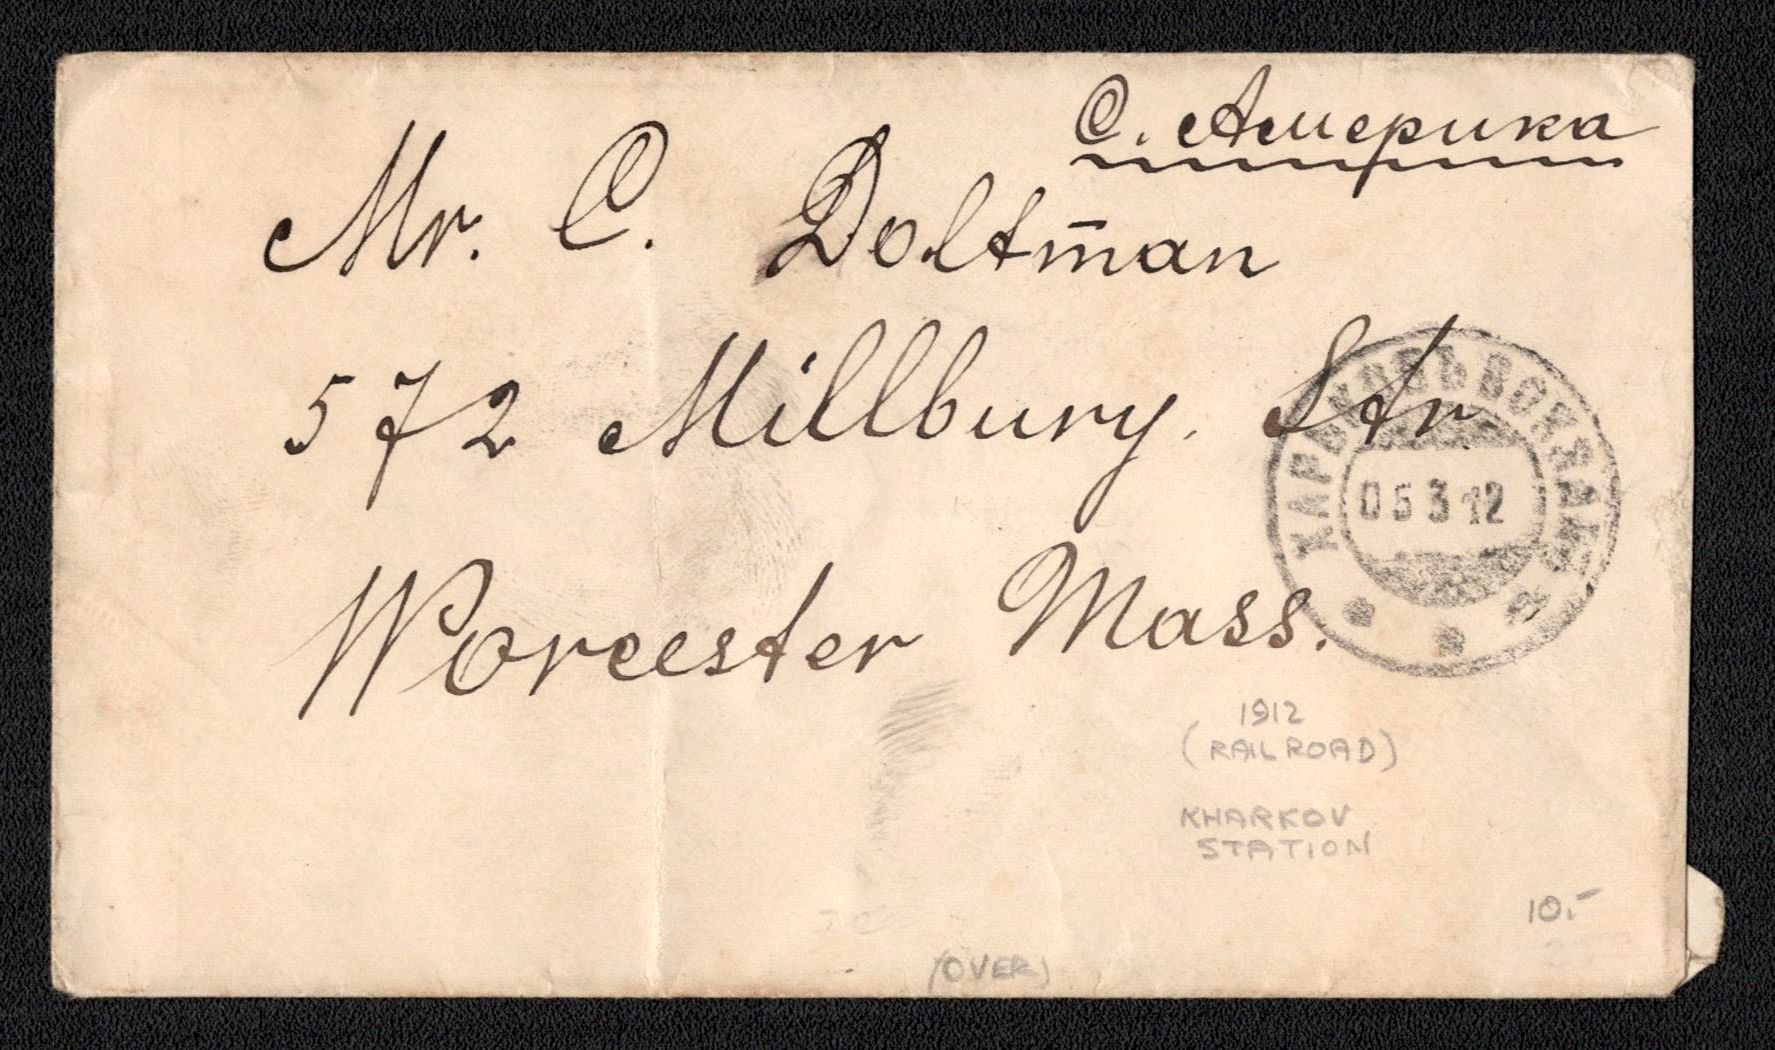 С. Америка
Mr. C. Doltman
572 Millbury. Str
Worcester Mass.
ХАРЬКОВЪ ВОКЗАЛЪ
05 3 12
1912
(RAILROAD)
KHARKOV
STATION
10.-
(OVER)